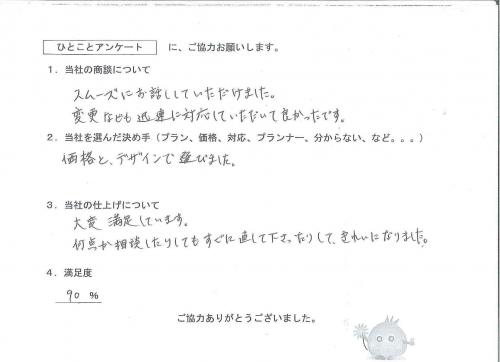 ひとことアンケート に、ご協力お願いします。
1．当社の商談について
スムーズにお話ししていただけました。
変更なども迅速に対応していただいて良かったです。
2．当社を選んだ決め手（プラン、価格、対応、プランナー、分からない、など。。。）
価格と、デザインで選びました。
3．当社の仕上げについて
大変満足しています。
何点か相談したりしてもすぐに直して下さったりして、きれいになりました。
4．満足度
90 %
ご協力ありがとうございました。